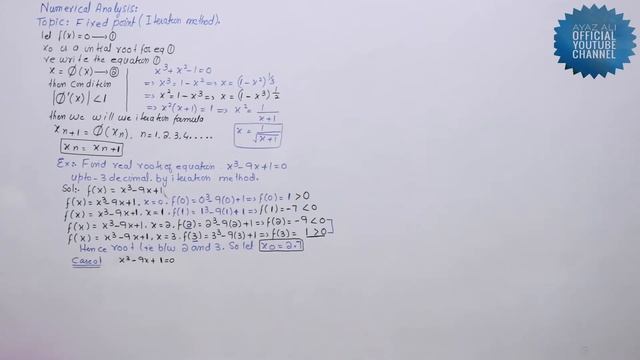 Numerical Analysis:
Topic: Fixed point (Iteration method).
let f(x)=0 → ①
x0 is a initial root for eq ①
re write the equation ①
x = Ø(x) → ②
then condition
|Ø'(x)| < 1
then we will use iteration formula
xn+1 = Ø(xn), n=1,2,3,4,.....
xn = xn+1
x³+x²-1=0
=> x³=1-x² => x=(1-x²)^1/3
=> x²=1-x³ => x=(1-x³)^1/2
=> x²(x+1)=1 => x²=1/(x+1)
x = 1/√(x+1)
Ex:- Find real root of equation x³-9x+1=0
upto-3 decimal by iteration method.
Sol:- f(x)=x³-9x+1
f(x)=x³-9x+1, x=0. f(0)=0³-9(0)+1 => f(0)=1>0
f(x)=x³-9x+1, x=1. f(1)=1³-9(1)+1 => f(1)=-7<0
f(x)=x³-9x+1, x=2. f(2)=2³-9(2)+1 => f(2)=-9<0
f(x)=x³-9x+1, x=3. f(3)=3³-9(3)+1 => f(3)=1>0
Hence root lie b/w 2 and 3. So let x0=2.7
Case01 x³-9x+1=0
AYAZ ALI
OFFICIAL
YOUTUBE
CHANNEL